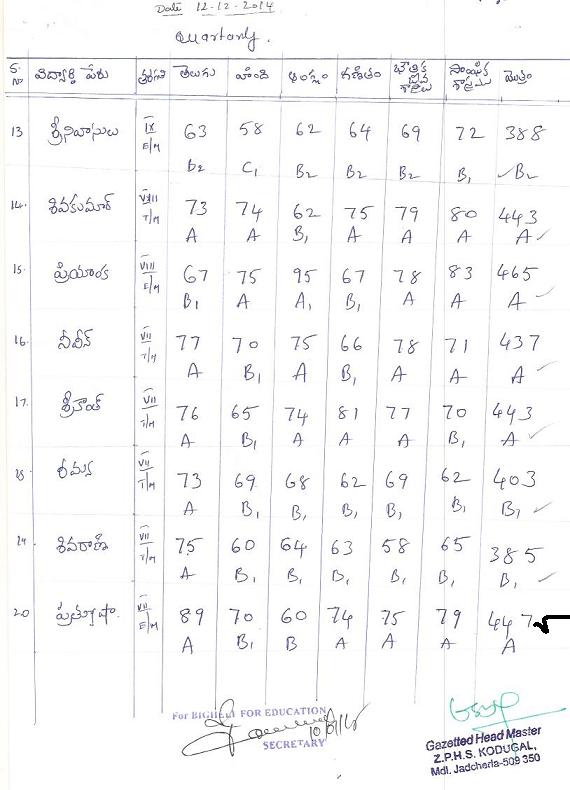 Date 12-12-2014
Quartarly.
S.No విద్యార్థి పేరు తరగతి తెలుగు హింది ఆంగ్లం గణితం భౌతిక జీవ శాస్త్రం సాంఘిక శాస్త్రము మొత్తం
13 శ్రీనివాసులు IX E/M 63 58 62 64 69 72 388
B2 C1 B2 B2 B2 B1 B2
14. శివకుమార్ VIII T/M 73 74 62 75 79 80 443
A A B1 A A A A
15. ప్రియాంక VIII E/M 67 75 95 67 78 83 465
B1 A A1 B1 A A A
16. నవీన్ VII T/M 77 70 75 66 78 71 437
A B1 A B1 A A A
17. శ్రీకాంత్ VII T/M 76 65 74 81 77 70 443
A B1 A A A B1 A
18. VII T/M 73 69 68 62 69 62 403
A B1 B1 B1 B1 B1 B1
19. శివరాణి VII T/M 75 60 64 63 58 65 385
A B1 B1 B1 B1 B1 B1
20 ప్రత్యూషా. VII E/M 89 70 60 74 75 79 447
A B1 B A A A A
For BIGHELP FOR EDUCATION
SECRETARY
Gazetted Head Master
Z.P.H.S. KODUGAL,
Mdl. Jadcherla-509 350